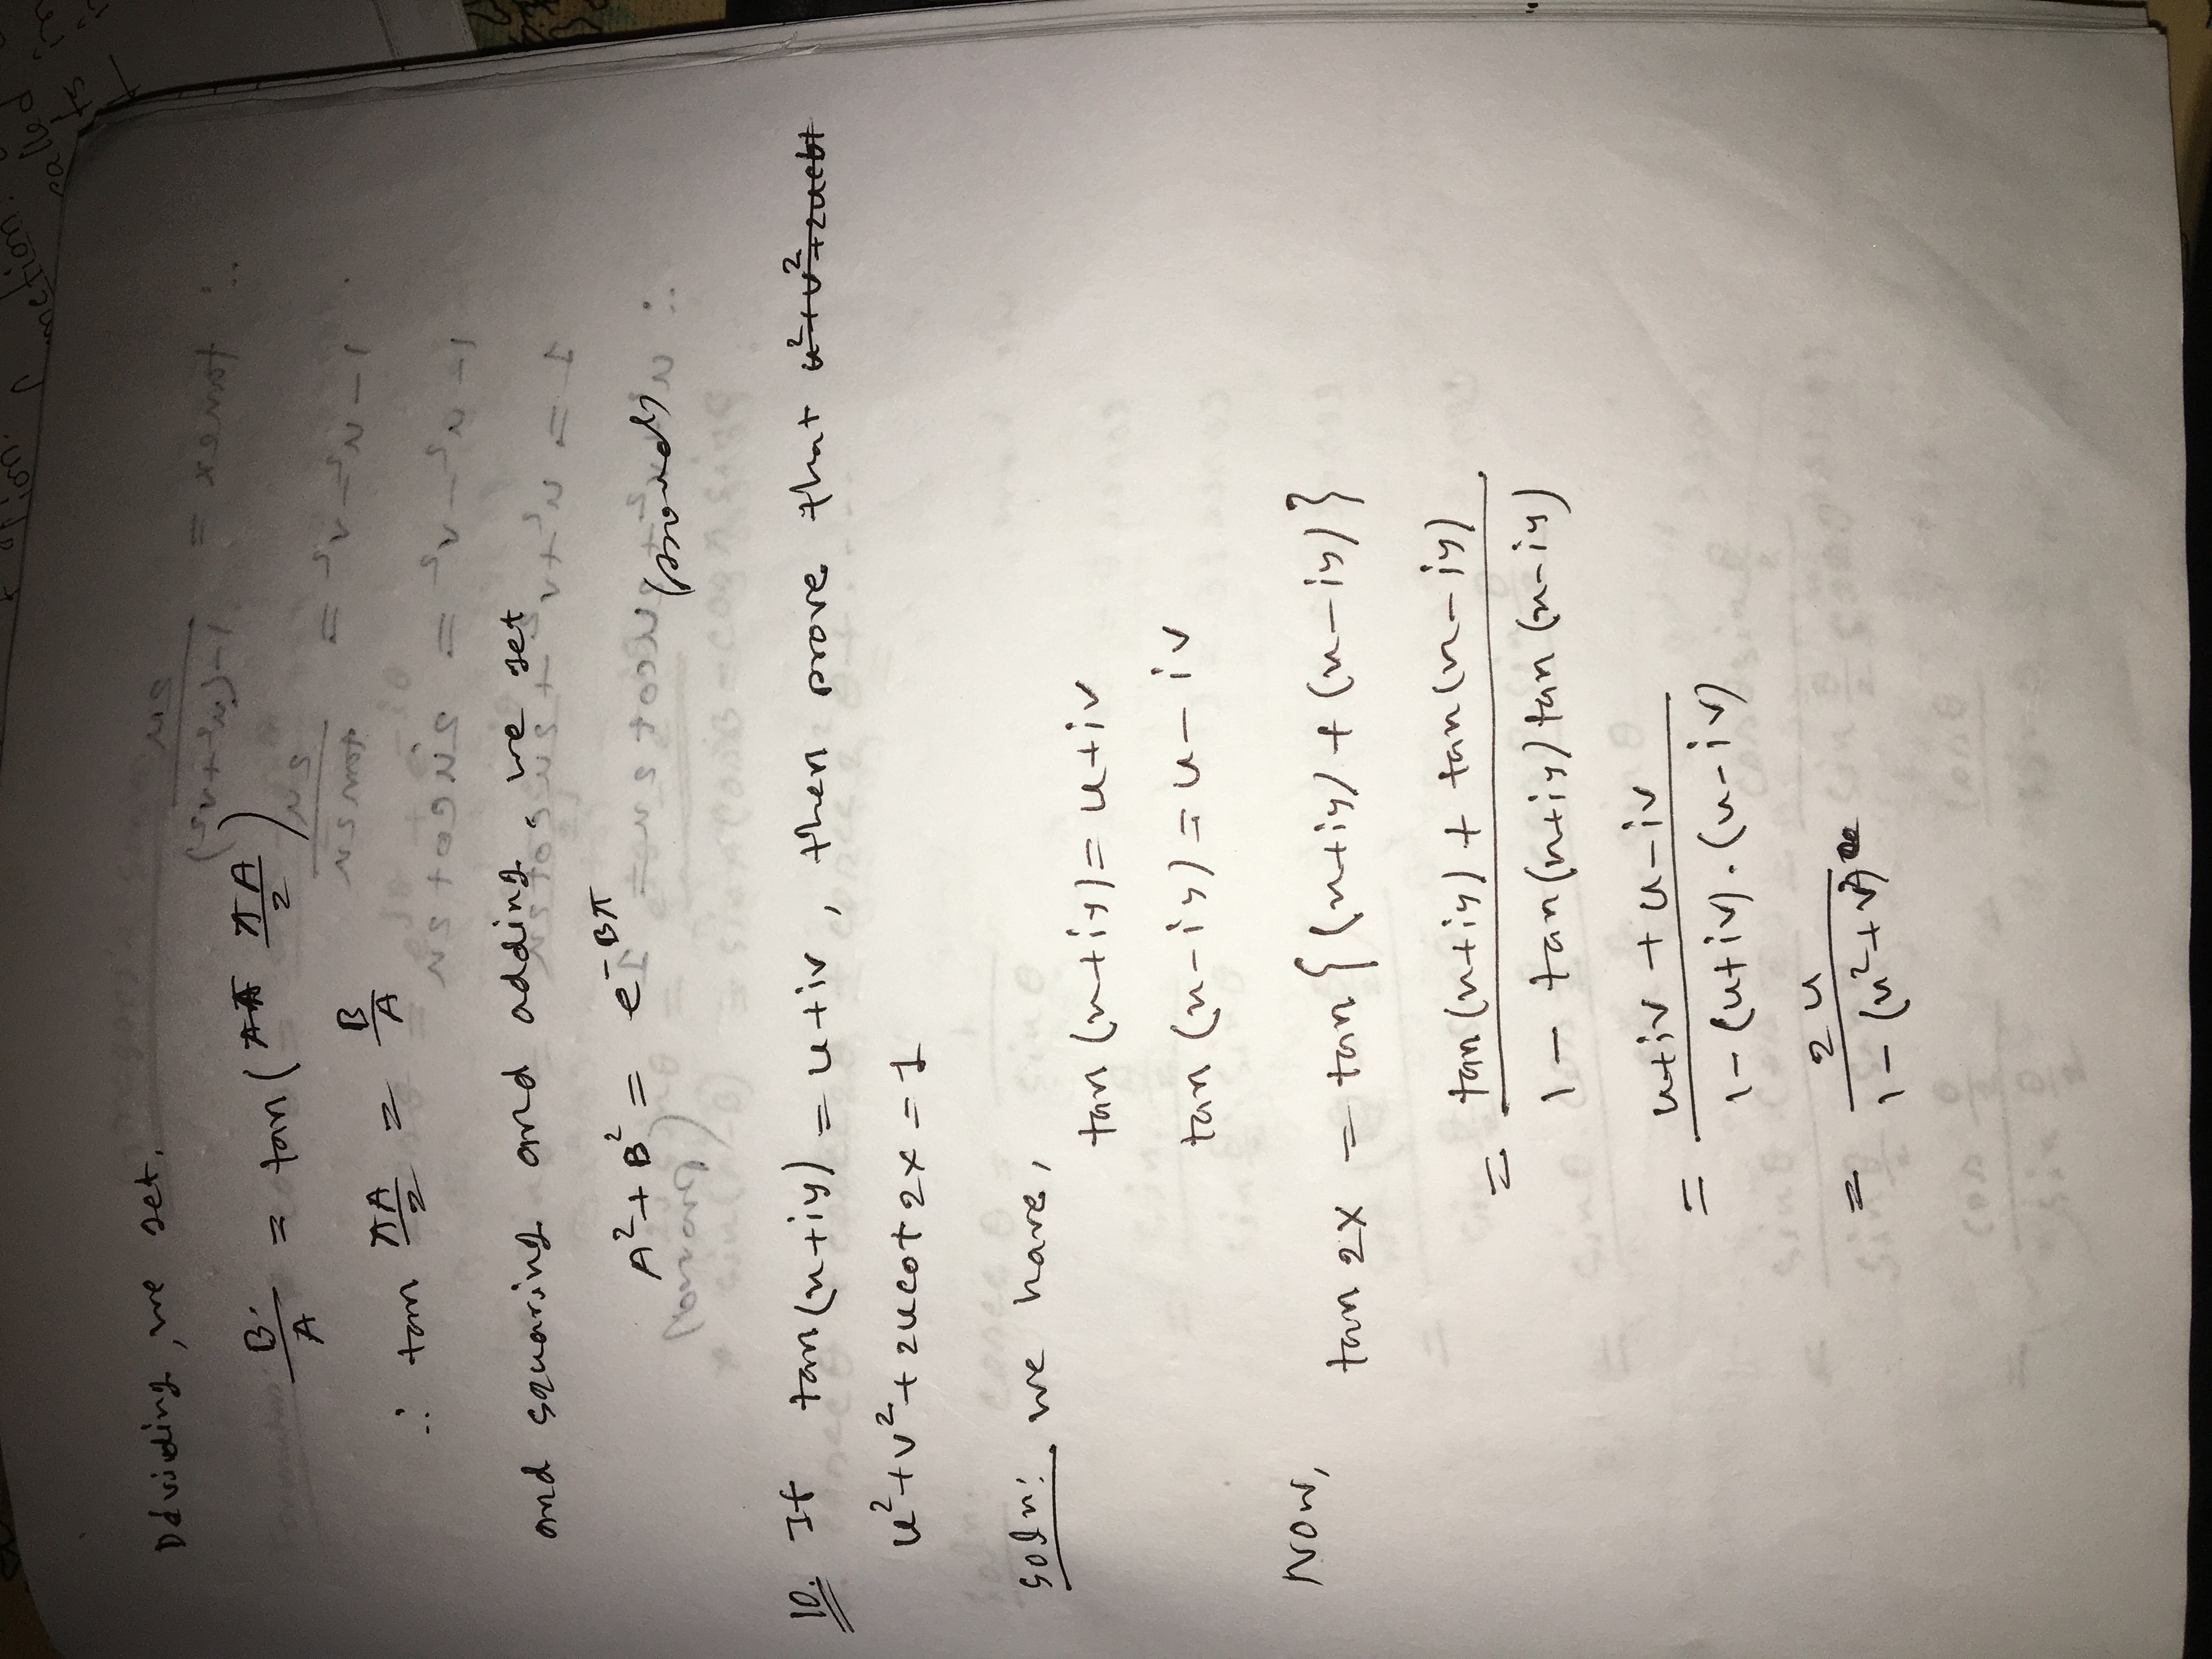 Dividing, we get,
B/A = tan( πA/2 )
∴ tan πA/2 = B/A
and squaring and adding, we get
A² + B² = e^-Bπ (proved)
10. If tan(x+iy) = u+iv, then prove that u²+v²+2ucot
u²+v²+2ucot2x = 1
Soln: we have,
tan(x+iy) = u+iv
tan(x-iy) = u-iv
Now,
tan 2x = tan{(x+iy) + (x-iy)}
= tan(x+iy) + tan(x-iy) / 1 - tan(x+iy) tan(x-iy)
= u+iv + u-iv / 1-(u+iv).(u-iv)
= 2u / 1-(u²+v²)